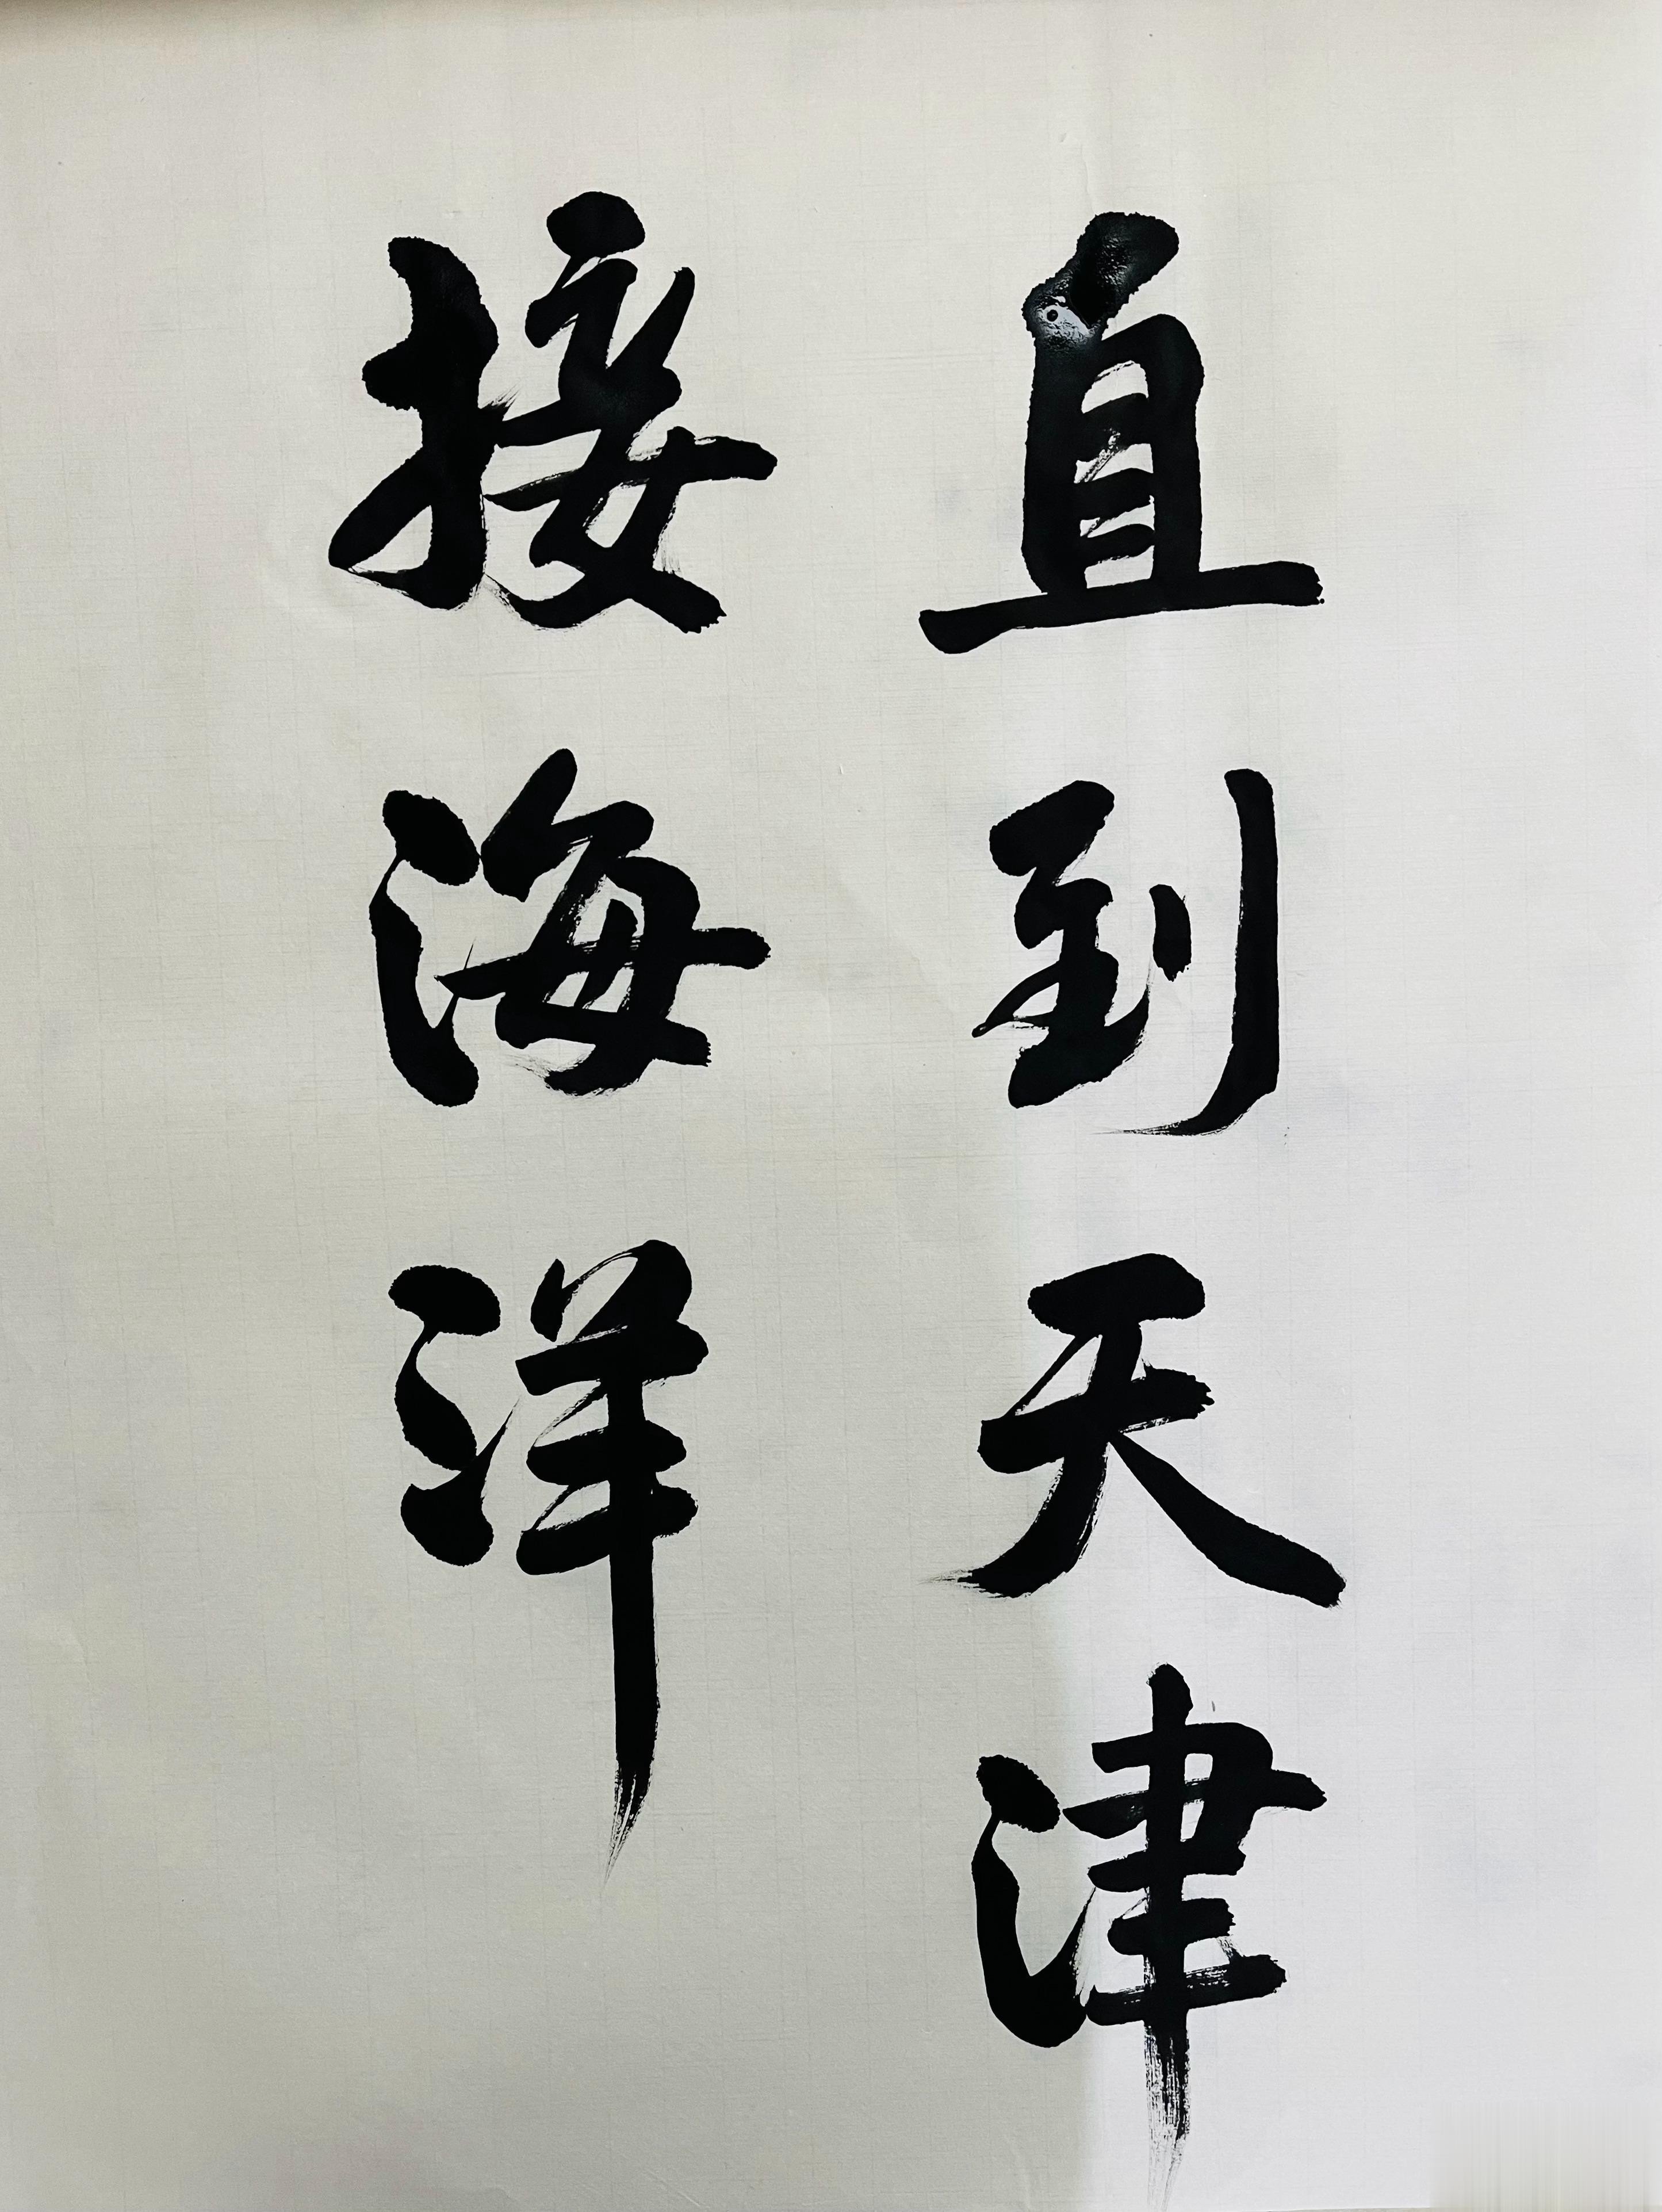 直到天津
接海洋